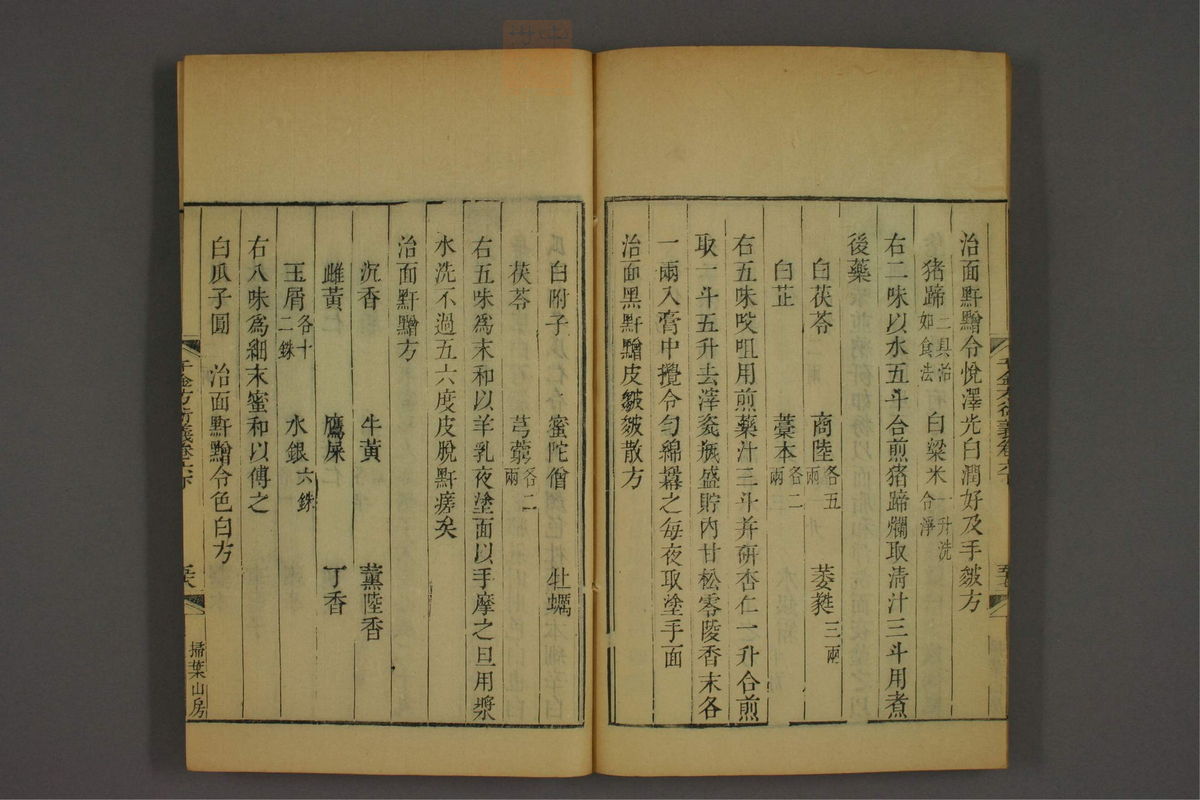 治面䵟䵴令悅澤光白潤好及手皴方
猪蹄二具治如食法 白粱米一升洗令淨
右二味以水五斗合煎猪蹄爛取清汁三斗用煮
後藥
白茯苓 商陸各五兩 萎蕤三兩
白芷 藁本各二兩
右五味㕮咀用煎藥汁三斗并研杏仁一升合煎
取一斗五升去滓瓷瓶盛貯內甘松零陵香末各
一兩入膏中攪令勻綿羃之每夜取塗手面
治面黑䵟䵴皮皴皺散方
白附子 蜜陀僧 牡蠣
茯苓 芎藭各二兩
右五味為末和以羊乳夜塗面以手摩之旦用漿
水洗不過五六度皮脫䵟瘥矣
治面䵟䵴方
沉香 牛黃 薰陸香
雌黃 鷹屎 丁香
玉屑各十二銖 水銀六銖
右八味為細末蜜和以傅之
白瓜子圓 治面䵟䵴令色白方
千金方衍義卷六下
掃葉山房